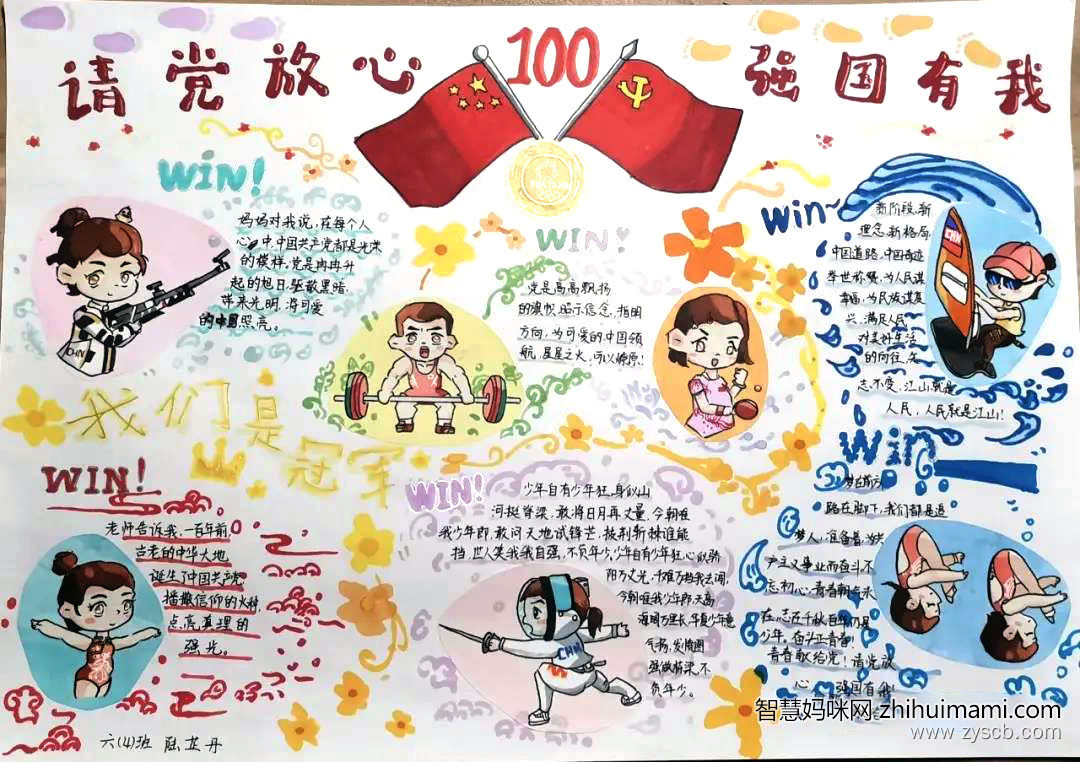 请党放心
100
强国有我
WIN!
妈妈对我说,在每个人
心中,中国共产党都是光荣
的模样,党是冉冉升
起的旭日,驱散黑暗,
带来光明,将可爱
的中国照亮。
WIN!
党是高高飘扬
的旗帜,昭示信念,指明
方向,为可爱的中国领
航,星星之火,可以燎原!
win~
新阶段,新
理念,新格局,
中国道路,中国奇迹
举世称赞,为人民谋
幸福,为民族谋复
兴,满足人民
对美好生活
的向往,矢
志不变,江山就是
人民,人民就是江山!
CHN
CHN
我们是
冠军
WIN!
老师告诉我,一百年前,
古老的中华大地
诞生了中国共产党
播撒信仰的火种,
点亮真理的
强光。
WIN!
少年自有少年狂,身似山
河挺脊梁,敢将日月再丈量,今朝唯
我少年郎,敢问天地试锋芒,披荆斩棘谁能
挡,世人笑我我自强,不负年少,少年自有少年狂,心似骄
阳万丈光,千难万挡我去闯,
今朝唯我少年郎,天高
海阔万里长,华夏少年意
气扬,发愤图
强做栋梁,不
负年少。
CHN
win
梦在前方
路在脚下,我们都是追
梦人!准备着,为共
产主义事业而奋斗,不
忘初心,青春朝气永
在,志在千秋,百年仍是
少年,奋斗正青春!
青春献给党!请党放
心,强国有我!
六(4)班
智慧妈咪网 zhihuimami.com
www.zyscb.com